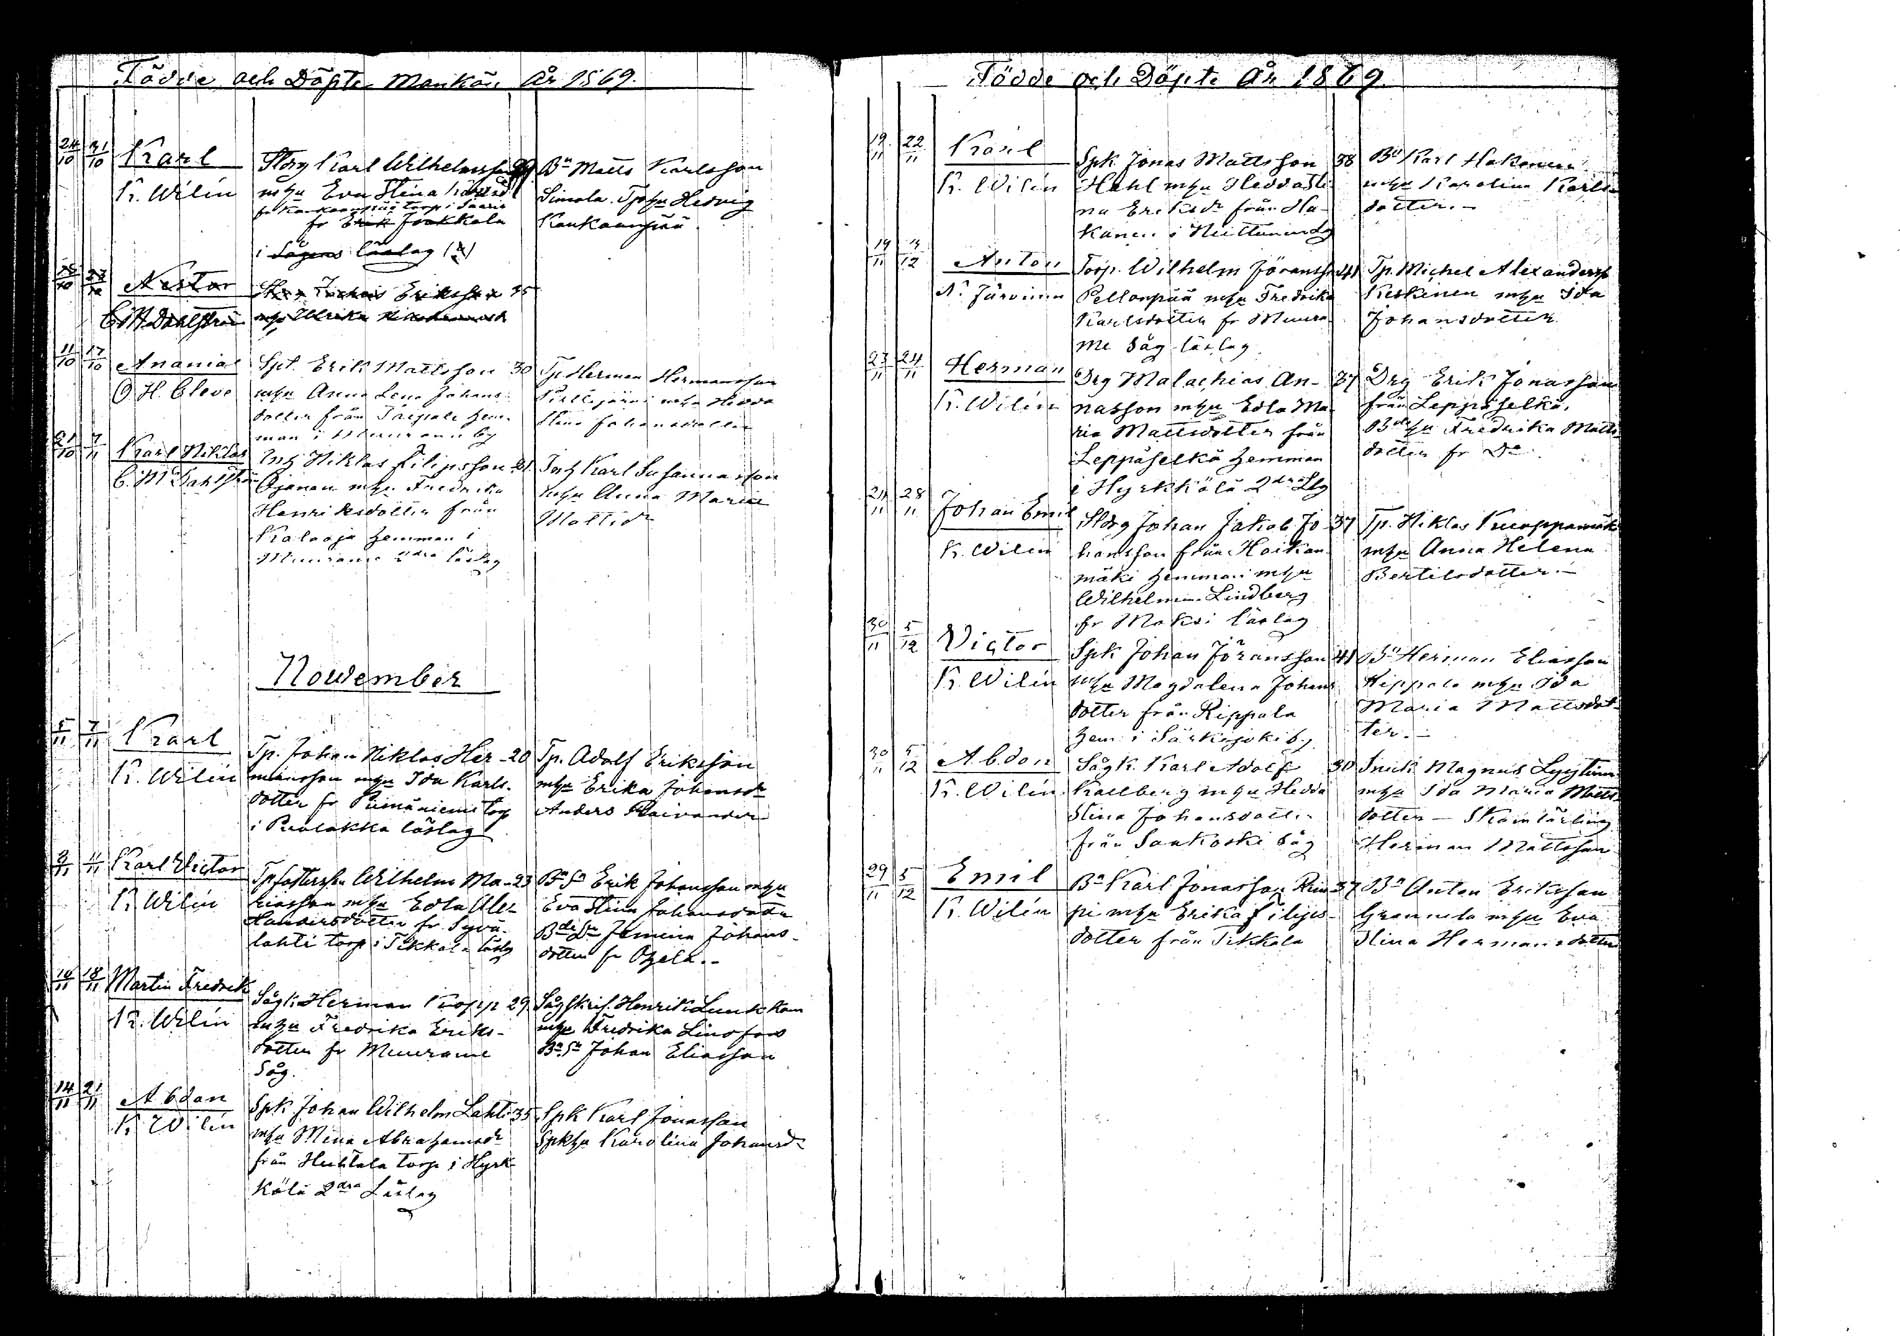 Födde och Döpte Mankön År 1869.
24/10 31/10 Karl
K. Wilén
Karl Wilhelmsson 29
mhu Eva Stina
i Saaris
fr Erik Jaakkola
i Sågens läslag
Bn Matts Karlsson
Simola. Tp hu Hedvig
Kankaanpää
Nestor
C M Dahlström
Eriksson 25
mhu Ulrika
11/10 17/10 Ananias
O H. Cleve
Spk. Erik Mattsson 30
mhu Anna Lena Johans-
dotter från hem-
man i Muurame by
Tp Herman Hermansson
mhu Hedda
Stina Johansdotter
21/10 7/11 Karl Niklas
C. M Dahlström
Inh Niklas Filipsson 21
Ojanen mhu Fredrika
Henriksdotter från
Kalaoja hemman i
Muurame 2dra läslag
Inh Karl Susannasson
mhu Anna Maria
Mattsdr
November
5/11 7/11 Karl
K. Wilén
Tp. Johan Niklas Her- 20
mansson mhu Ida Karls-
dotter fr Niemäniemi torp
i Puolakka läslag
Tp. Adolf Eriksson
mhu Erika Johansdr
Anders
8/11 11/11 Karl Victor
K. Wilén
Wilhelm Ma- 23
kiasson mhu Edla Ale-
xandersdotter fr Syvä-
lahti torp i Tikkala läslag
Bn Sn Erik Johansson mhu
Eva Stina Johansdotr
Bde Dn Jemina Johans-
dotter fr Ojala.
14/11 18/11 Martin Fredrik
K. Wilén
Sågk. Herman Kropp 29
mhu Fredrika Eriks-
dotter fr Muurame
Såg.
Sågskrif. Henrik Lunkkam
mhu Fredrika Lindfors
Bn Sn Johan Eliasson
14/11 21/11 Abdon
K Wilén
Spk Johan Wilhelm Lahti 35
mhu Mina Abrahamsdr
från Huhtala torp i Hyrk-
kölä 2dra Läslag
Spk Karl Jonasson
Spkhu Karolina Johansdr
Födde och Döpte År 1869.
19/11 22/11 Karl
K. Wilén
Spk Jonas Mattsson 38
Hahl mhu Hedda Sti-
na Eriksdr från Ha-
kanen i Niittunen Lg
Bn Karl Hakanen
mhu Karolina Karls-
dotter.
19/11 4/12 Anton
N. Järvinen
Torp. Wilhelm Göransson 41
Pellonpää mhu Fredrika
Karlsdotter fr Muura-
me Såg läslag
Tp. Michel Alexandersson
Keskinen mhu Ida
Johansdotter
23/11 24/11 Herman
K. Wilén
Drg Malachias An- 37
nasson mhu Edla Ma-
ria Mattsdotter från
Leppäselkä hemman
i Hyrkkölä 2dra Llg
Drg Erik Jonasson
från Leppäselkä,
Bdehu Fredrika Matts-
dotter fr Do
24/11 28/11 Johan Emil
K. Wilén
Johan Jakob Jo- 37
hansson från Hoikan
mäki hemman mhu
Wilhelmina Lindberg
fr Moksi läslag
Tp. Niklas Knoppamäk
mhu Anna Helena
Bertilsdotter.
30/11 5/12 Victor
K. Wilén
Spk Johan Göransson 41
mhu Magdalena Johans
dotter från Rippala
hem i Särkijoki by
Bn Herman Eliasson
Rippala mhu Ida
Maria Mattsdot-
ter.
30/11 5/12 Abdon
K. Wilén
Sågk. Karl Adolf 30
Kallberg mhu Hedda
Stina Johansdotter
från Sankoski Såg
Snick Magnus
mhu Ida Maria Matts-
dotter - Skom lärling
Herman Mattsson
29/11 5/12 Emil
K. Wilén
Bn Karl Jonasson Rim- 37
pi mhu Erika Filips-
dotter från Tikkala
Bn Anton Eriksson
mhu Eva
Stina Hermansdotter